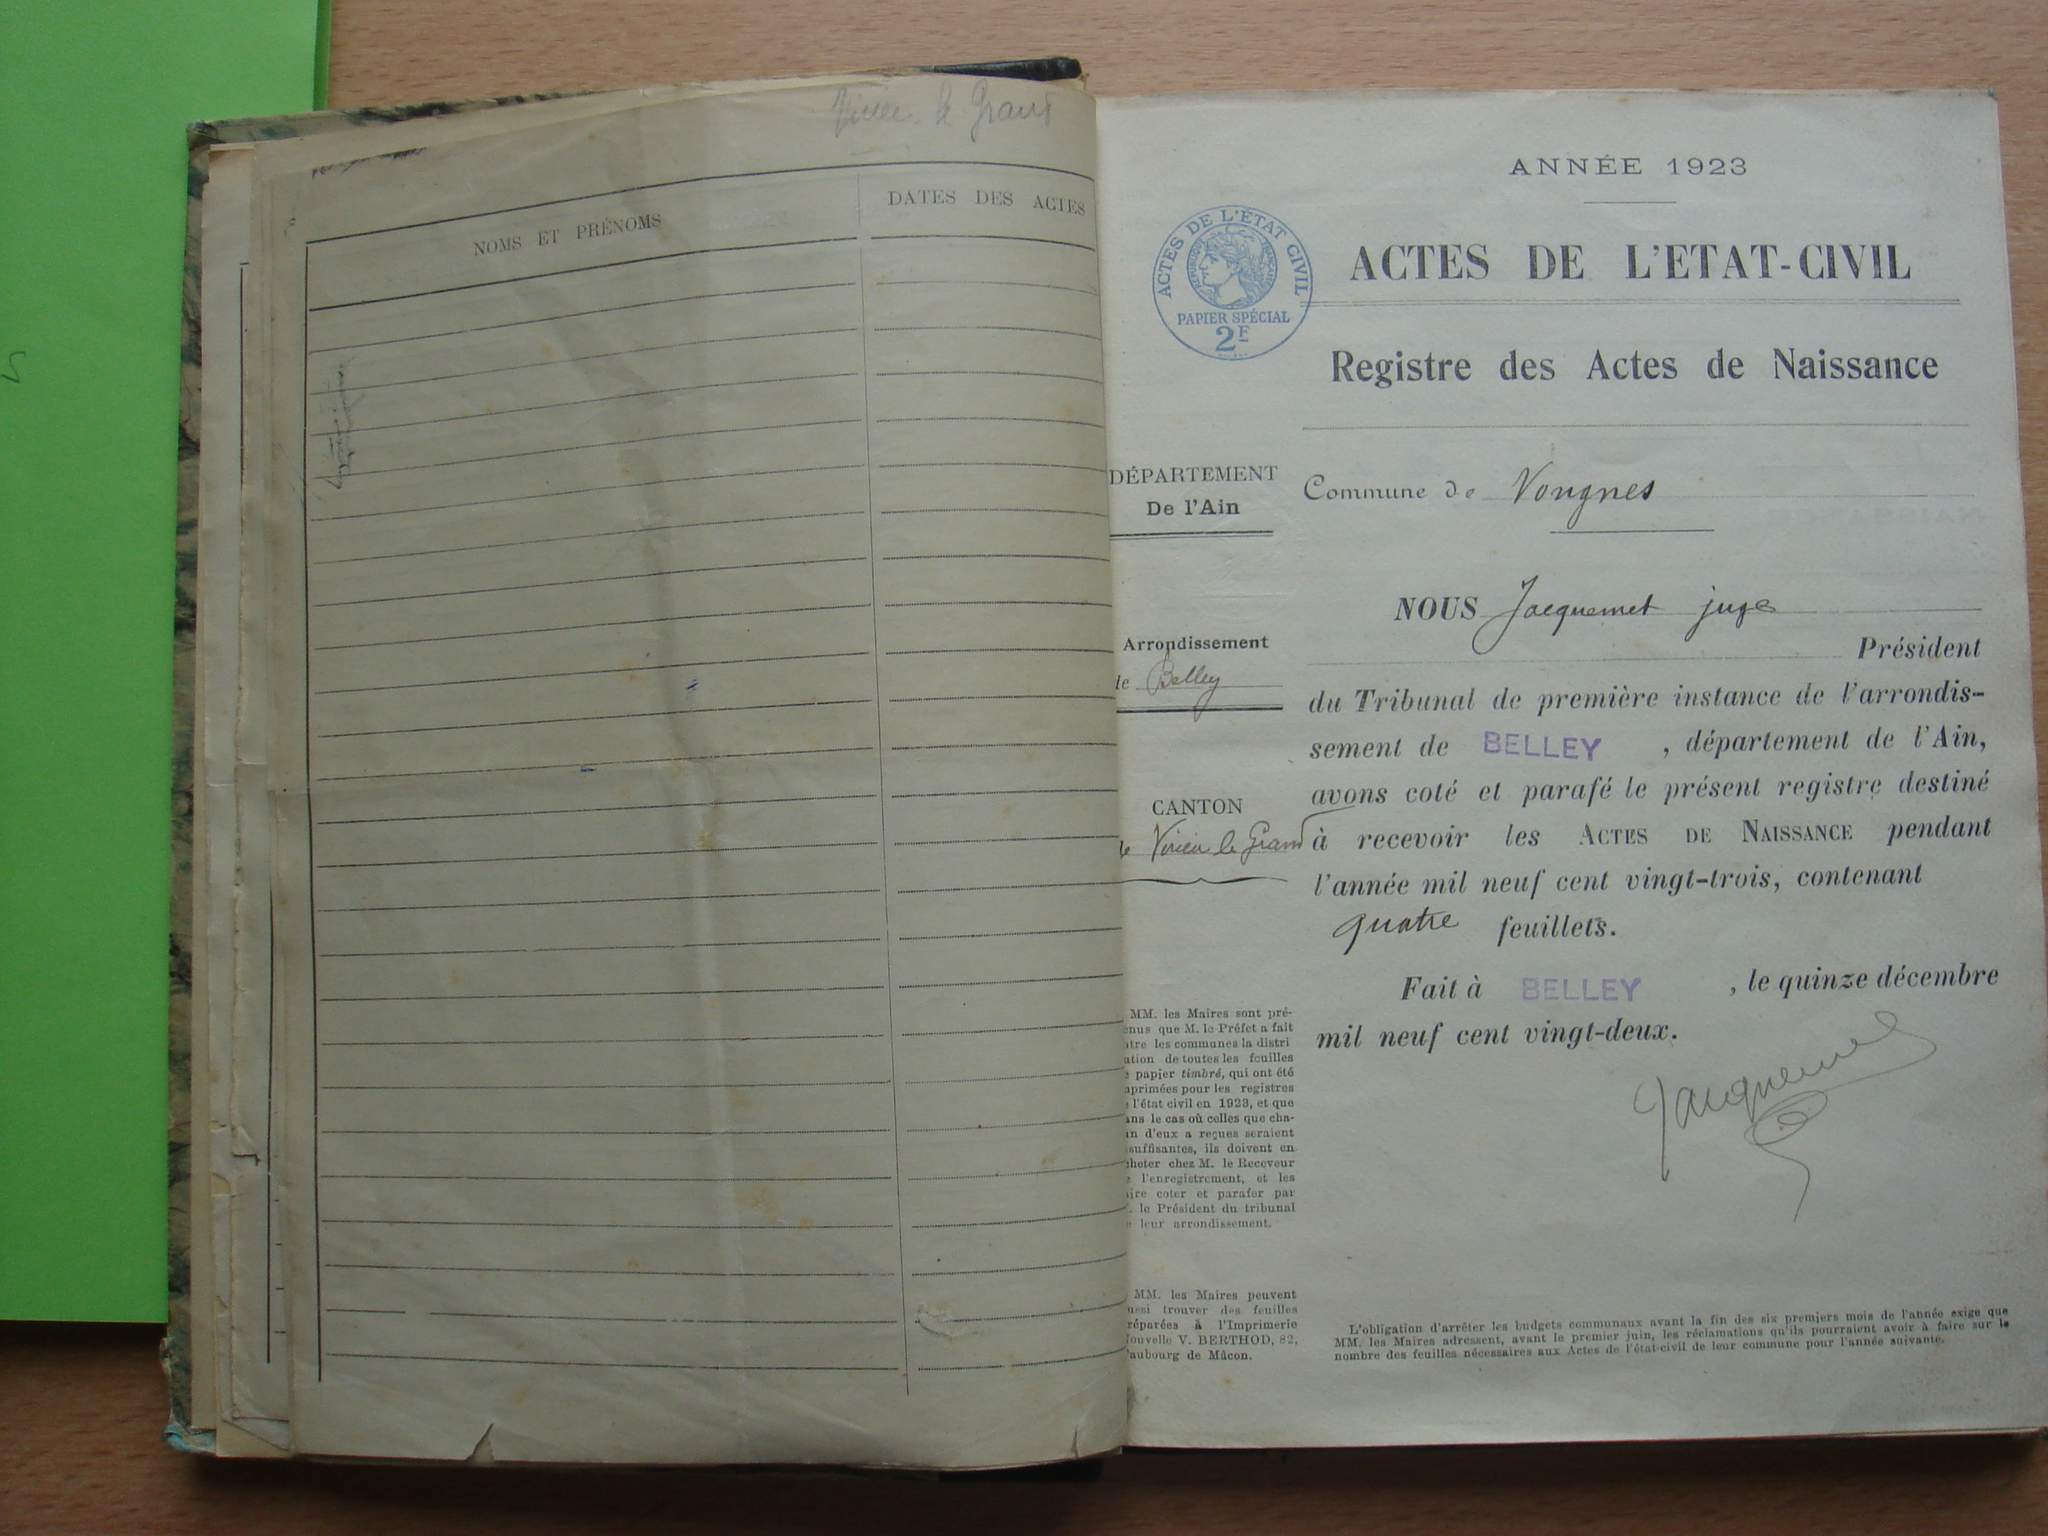 Virieu le Grand
NOMS ET PRÉNOMS
DATES DES ACTES
ANNÉE 1923
ACTES DE L'ÉTAT CIVIL
RÉPUBLIQUE FRANÇAISE
PAPIER SPÉCIAL
2F
ACTES DE L'ETAT-CIVIL
Registre des Actes de Naissance
DÉPARTEMENT
De l'Ain
Commune de Vongnes
Arrondissement
de Belley
CANTON
de Virieu le Grand
NOUS Jacquemet juge
Président
du Tribunal de première instance de l'arrondis-
sement de BELLEY , département de l'Ain,
avons coté et parafé le présent registre destiné
à recevoir les ACTES DE NAISSANCE pendant
l'année mil neuf cent vingt-trois, contenant
quatre feuillets.
Fait à BELLEY , le quinze décembre
mil neuf cent vingt-deux.
Jacquemet
MM. les Maires sont pré-
enus que M. le Préfet a fait
ntre les communes la distri
ution de toutes les feuilles
e papier timbré, qui ont été
mprimées pour les registres
e l'état civil en 1923, et que
ans le cas où celles que cha-
un d'eux a reçues seraient
nsuffisantes, ils doivent en
cheter chez M. le Receveur
e l'enregistrement, et les
aire coter et parafer par
. le Président du tribunal
e leur arrondissement.
MM. les Maires peuvent
ussi trouver des feuilles
réparées à l'Imprimerie
Nouvelle V. BERTHOD, 82,
faubourg de Mâcon.
L'obligation d'arrêter les budgets communaux avant la fin des six premiers mois de l'année exige que
MM. les Maires adressent, avant le premier juin, les réclamations qu'ils pourraient avoir à faire sur le
nombre des feuilles nécessaires aux Actes de l'état-civil de leur commune pour l'année suivante.